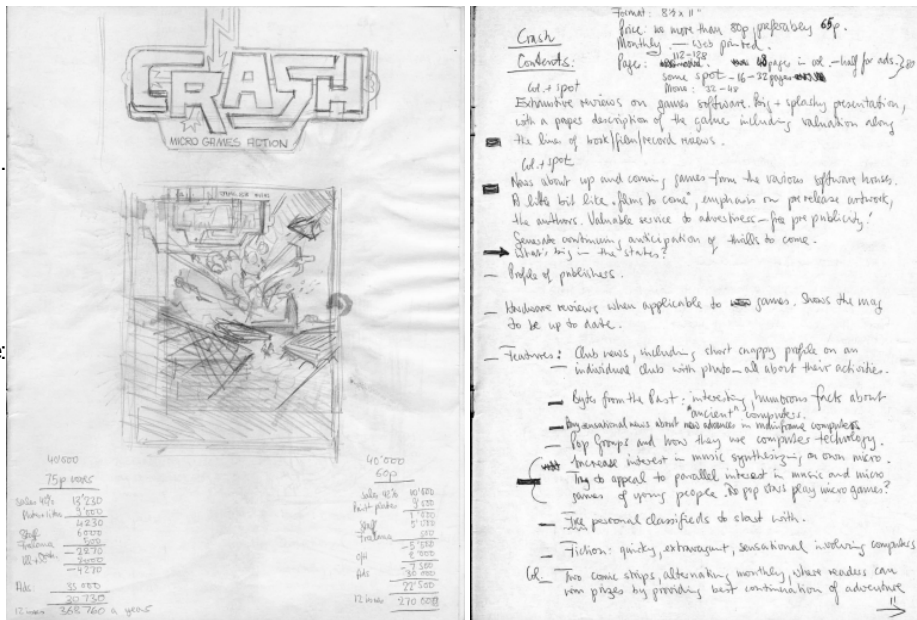 CRASH
MICRO GAMES ACTION
40'000
75p
Sales 45% 13'230
9'000
4230
Staff 6000
Freelance 500
-2270
2000
-4270
Ads 35 000
30 730
12 issues 368 760 a year
40'000
60p
Sales 45% 10'600
Staff
Freelance 500
O/H
Ads 30 000
22'500
12 issues 270 000
Format: 8½ x 11"
Crash
Price: no more than 80p, preferabely 65p.
Monthly — Web printed.
112-128
Contents:
Page: pages in col. – half for ads. } 80
some spot – 16-32 pages
Mono: 32-48
Col. + spot
Exhaustive reviews on games software. Big + splashy presentation,
with a paper description of the game including valuation along
the lines of book/film/record reviews.
Col. + spot
News about up and coming games from the various software houses.
A little bit like "films to come", emphasis on pre release artwork,
the authors. Valuable service to advertisers – free pre publicity!
Generate continuing anticipation of thrills to come.
What's big in the states?
— Profile of publishers.
— Hardware reviews when applicable to games. Shows the mag
to be up to date.
— Features: Club news, including short snappy profile on an
individual club with photo – all about their activities.
— Bytes from the Past: interesting, humorous facts about
"ancient" computers.
— Any sensational news about new advances in mainframe computers
— Pop Groups and how they use computer technology.
Increase interest in music synthesizing on own micro.
Try to appeal to parallel interest in music and micro
games of young people. Do pop stars play micro games?
— Free personal classifieds to start with.
— Fiction: quicky, extravagant, sensational involving computers
Col. — Two comic strips, alternating monthly, where readers can
win prizes by providing best continuation of adventure